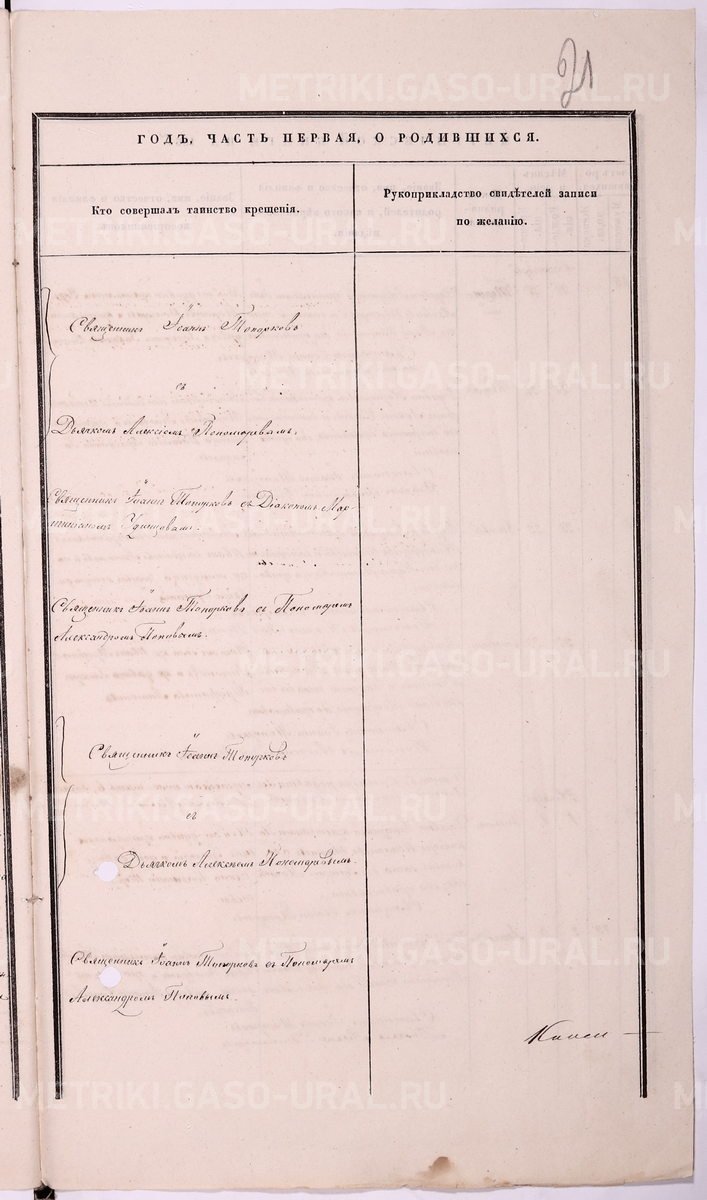 21
ГОДЪ, ЧАСТЬ ПЕРВАЯ, О РОДИВШИХСЯ.
Кто совершалъ таинство крещенія.
Рукоприкладство свидѣтелей записи
по желанію.
Священникъ Іоаннъ Топорковъ
съ
Дьячкомъ Алексіемъ Пономаревымъ.
Священникъ Іоаннъ Топорковъ съ Діакономъ Мар-
Священникъ Іоаннъ Топорковъ съ Пономаремъ
Александромъ Поповымъ.
Священникъ Іоаннъ Топорковъ
съ
Дьячкомъ Алексѣемъ Пономаревымъ.
Священникъ Іоаннъ Топорковъ съ Пономаремъ
Александромъ Поповымъ.
METRIKI.GASO-URAL.RU